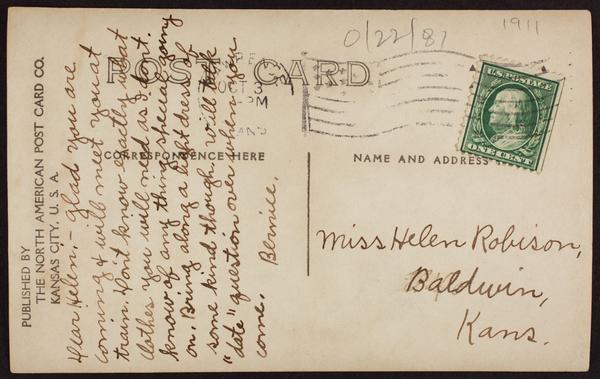 0/22/81
1911
POST CARD
OCT 3
PM
U.S. POSTAGE
ONE CENT
CORRESPONDENCE HERE
NAME AND ADDRESS
PUBLISHED BY
THE NORTH AMERICAN POST CARD CO.
KANSAS CITY, U. S. A.
Dear Helen:- Glad you are
coming & will meet you at
train. Don't know exactly what
clothes you will need as I don't
know of any thing special going
on. Bring along a light dress of
some kind though. Will talk
"date" question over when you
come. Bernice.
Miss Helen Robison,
Baldwin,
Kans.